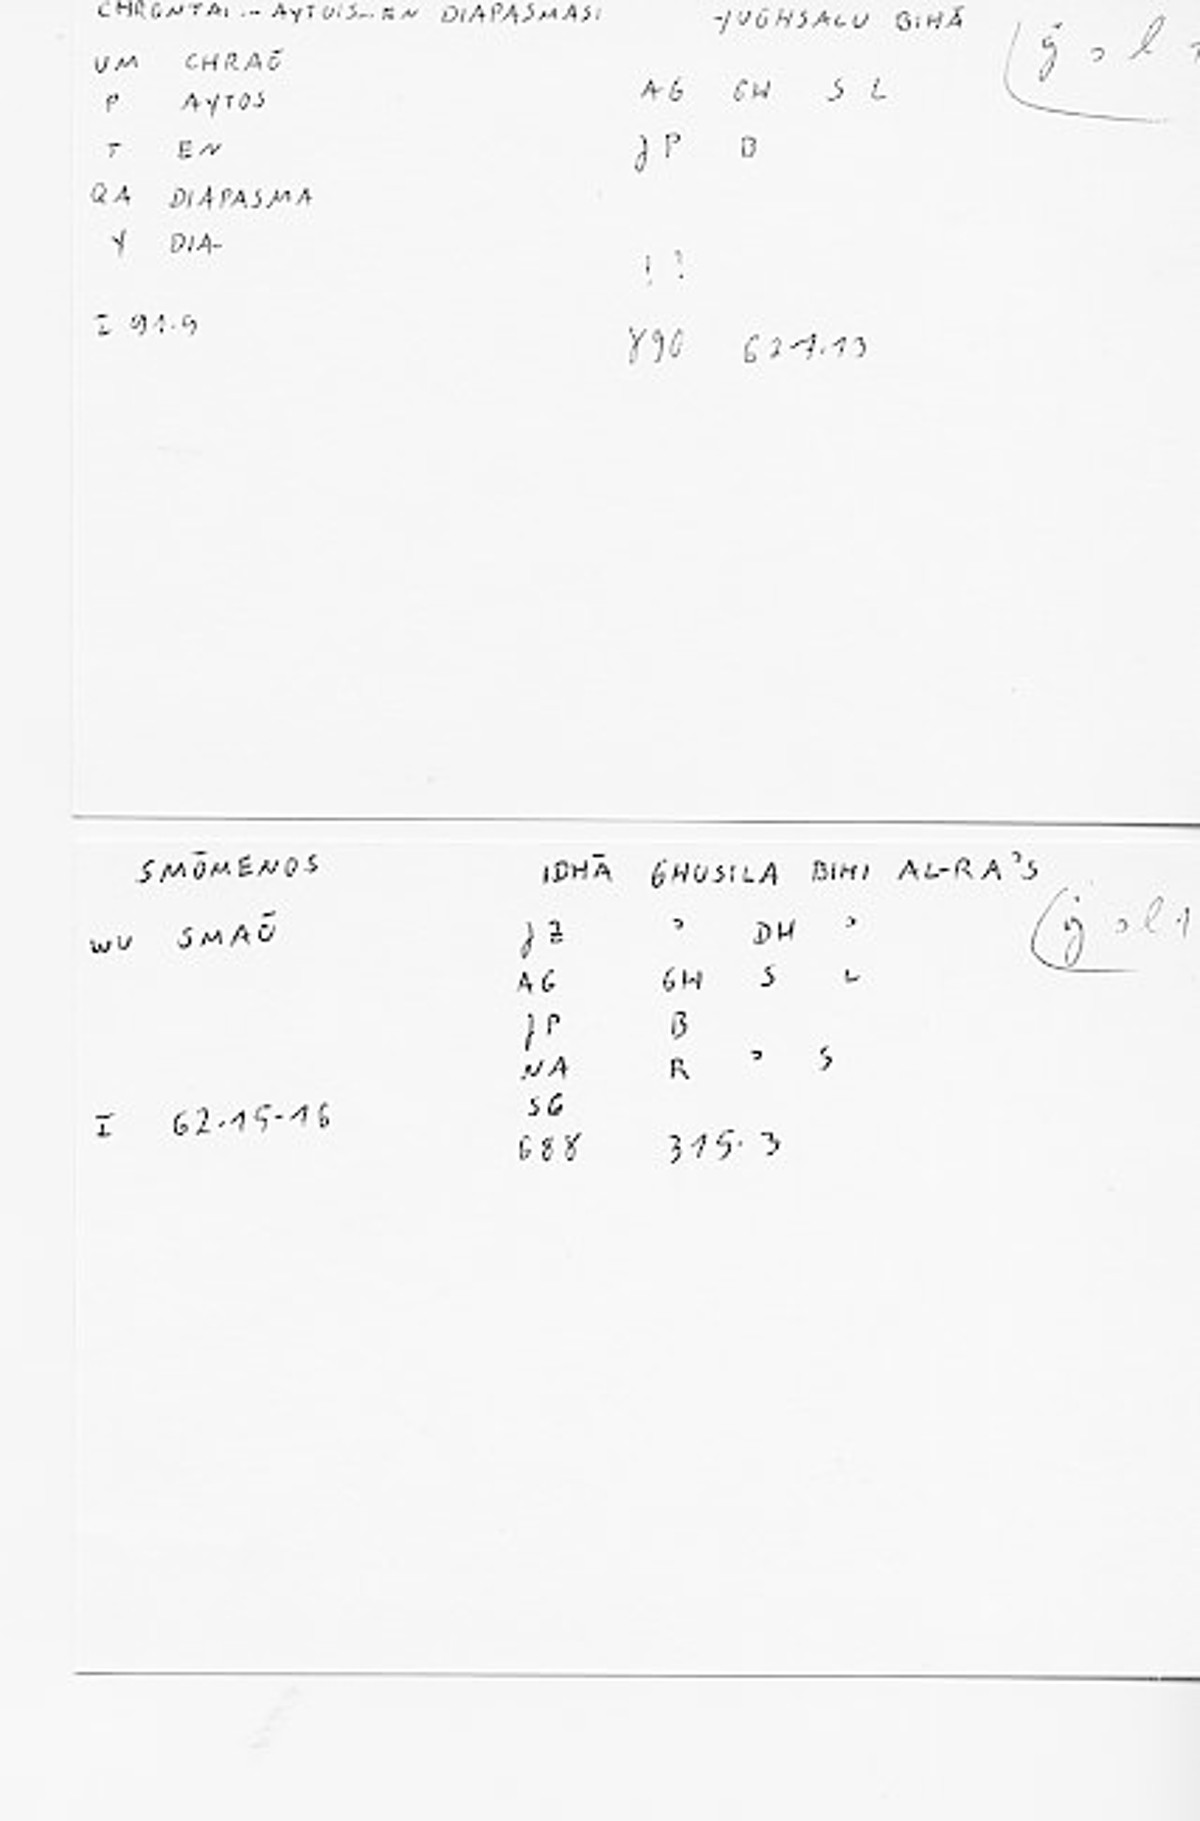 CHRŌNTAI .– AYTOIS – EN DIAPASMASI YUGHSALU BIHĀ
UM CHRAŌ
P AYTOS AG GH S L
T EN JP B
QA DIAPASMA
Y DIA-
! ?
I 91.9
890 627.13
SMŌMENOS IDHĀ GHUSILA BIHI AL-RA'S
WU SMAŌ JZ ' DH '
AG GH S L
JP B
NA R ' S
SG
I 62.15-16
688 315.3